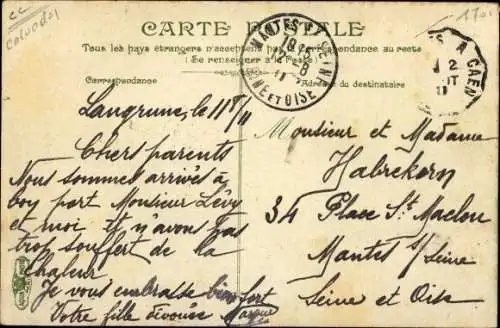 CC
Calvados
CARTE POSTALE
Tous les pays étrangers n'acceptent pas la Correspondance au recto
(Se renseigner à la Poste)
Correspondance
Adresse du destinataire
MANTES S. SEINE
SEINE ET OISE
A CAEN
Langrune, le 11 8/11
Chers parents
Nous sommes arrivés à
bon port Monsieur Lévy
et moi et n'avons pas
trop souffert de la
Chaleur
Je vous embrasse bien fort
Votre fille dévouée
Monsieur et Madame
Habrekorn
34 Place St Maclou
Mantes s/ Seine
Seine et Oise